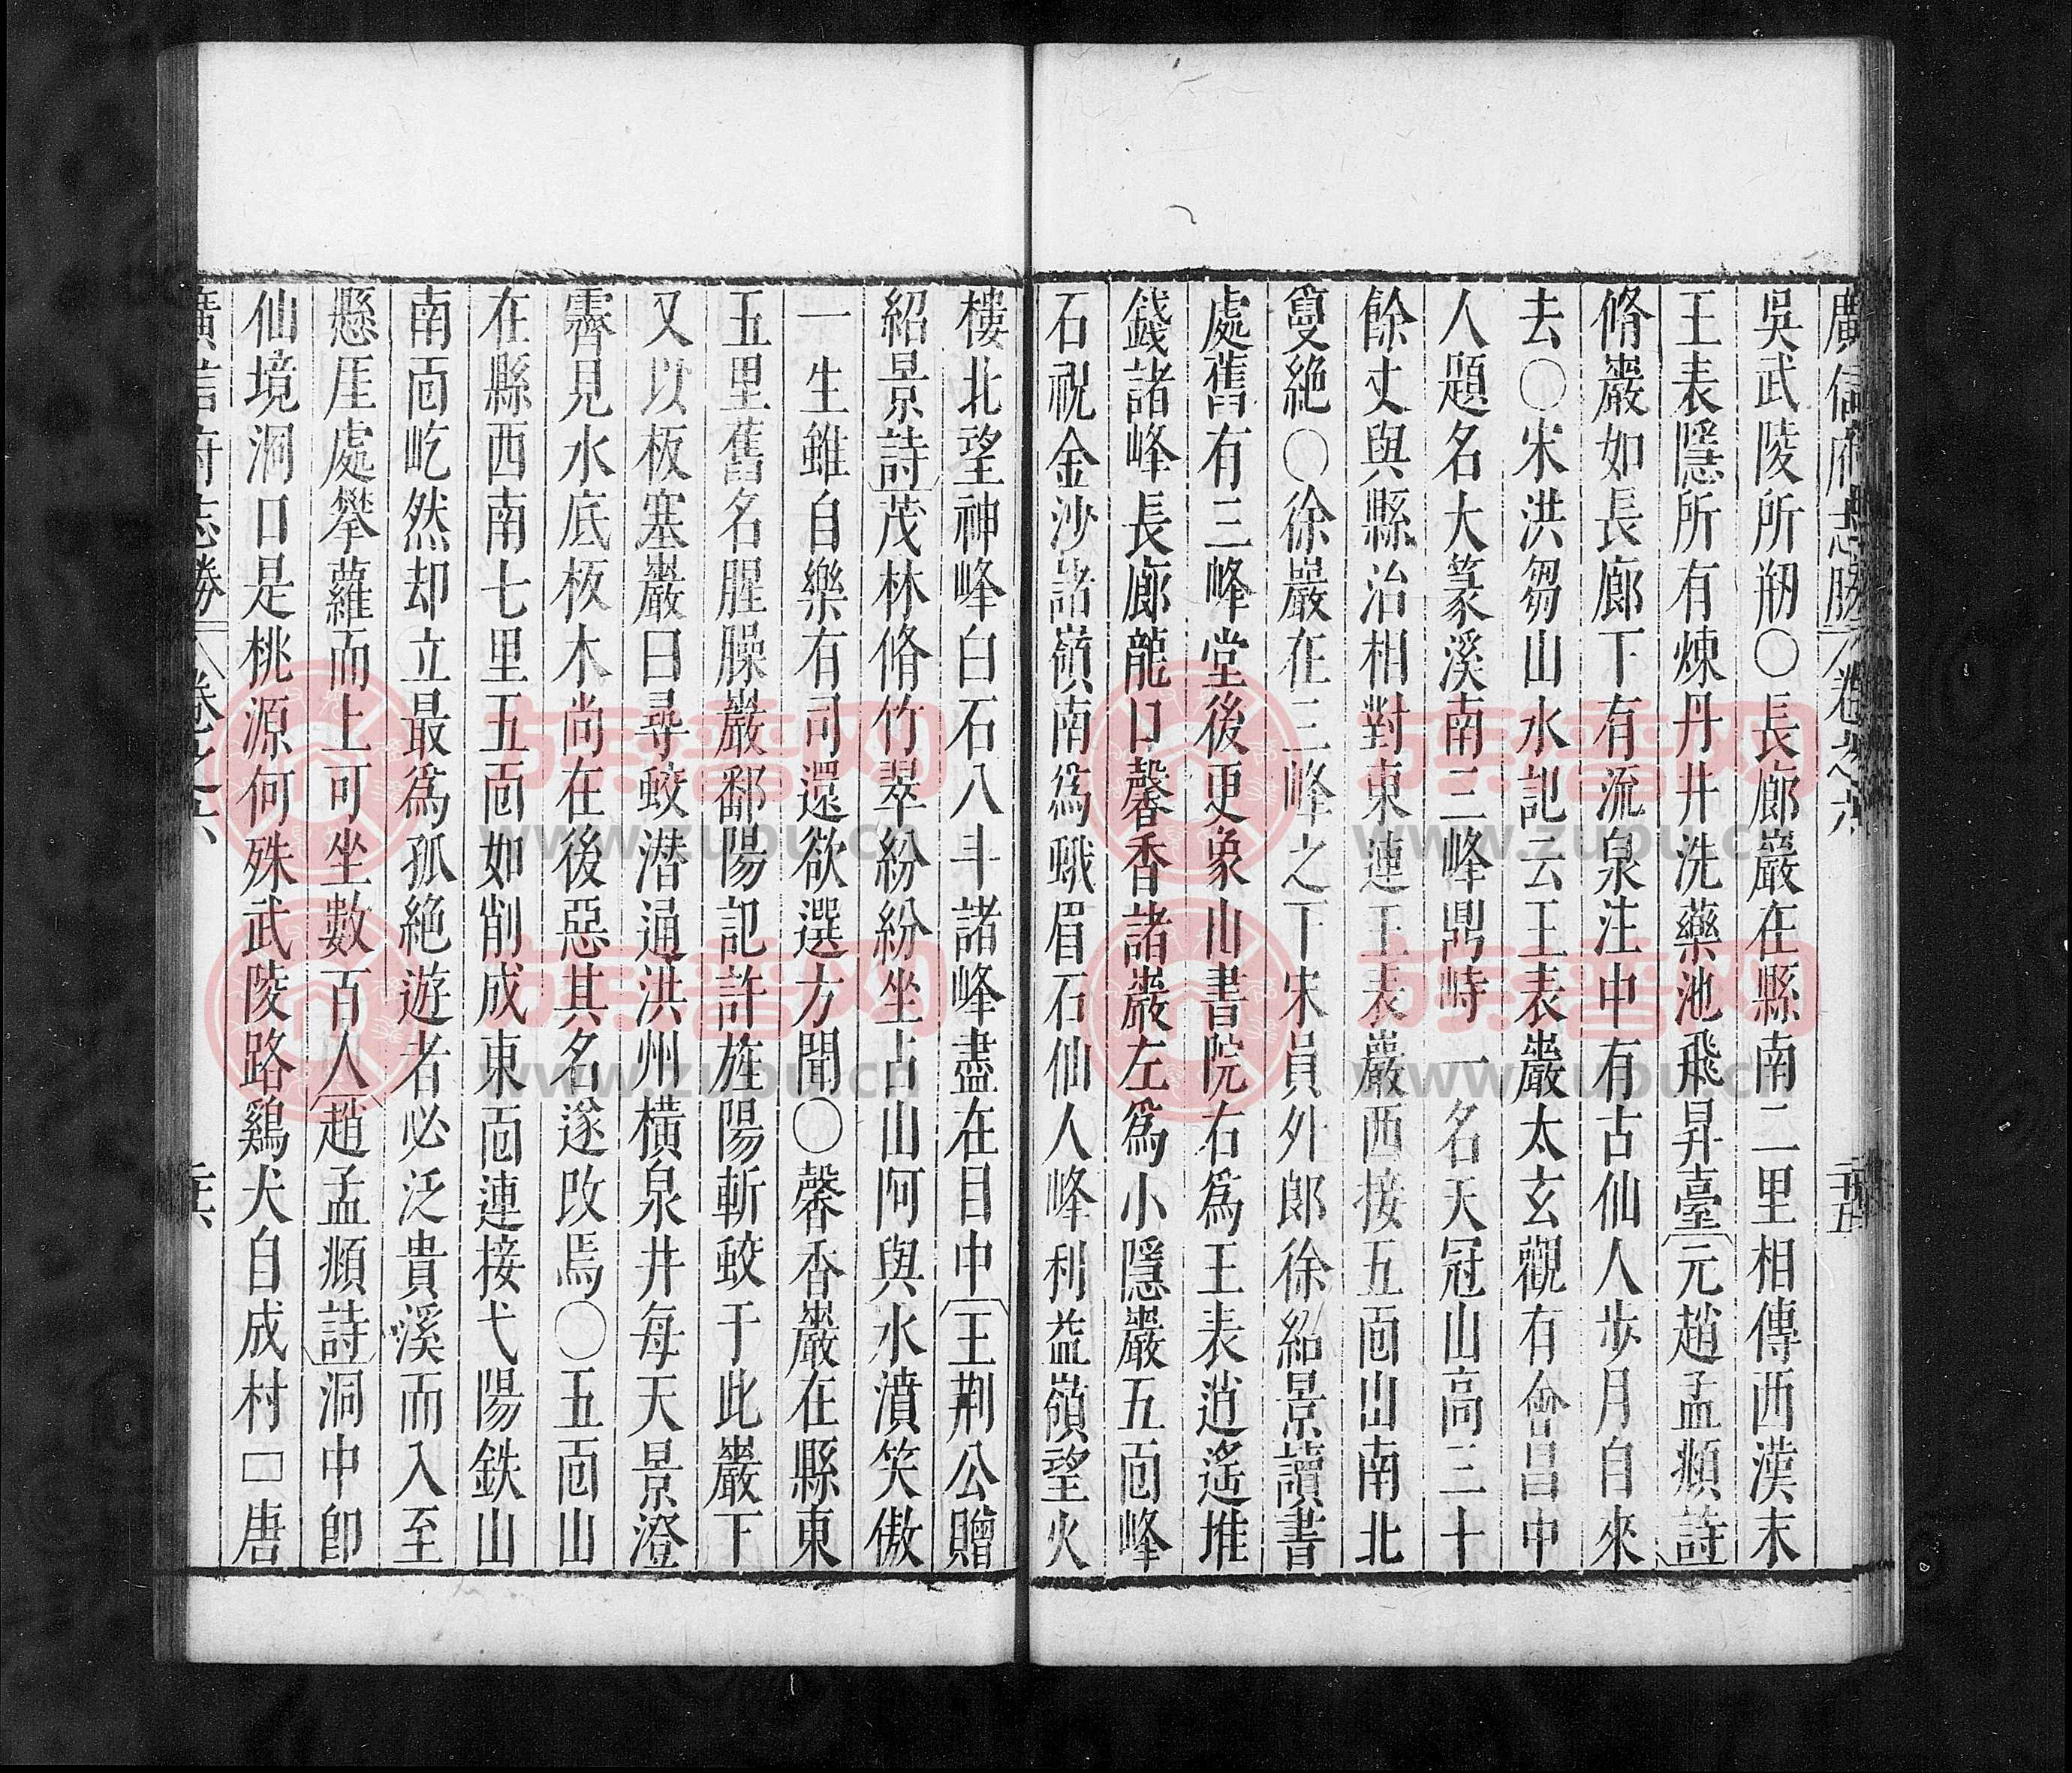 廣信府志勝 卷之六 二十五
吳武陵所剏○長廊巖在縣南二里相傳西漢末
王表隱所有煉丹井洗藥池飛昇臺元趙孟頫詩
脩巖如長廊下有流泉注中有古仙人步月自來
去○宋洪芻山水記云王表巖太玄觀有會昌中
人題名大篆溪南三峰鼎峙一名天冠山高三十
餘丈與縣治相對東連王表巖西接五靣山南北
敻絶○徐巖在三峰之下宋員外郎徐紹景讀書
處舊有三峰堂後更象山書院右爲王表逍遙堆
錢諸峰長廊龍口馨香諸巖左爲小隱巖五靣峰
石祝金沙諸嶺南爲峨眉石仙人峰利益嶺望火
樓北望神峰白石八斗諸峰盡在目中王荆公贈
紹景詩茂林脩竹翠紛紛坐占山阿與水濆笑傲
一生雖自樂有司還欲選方聞○馨香巖在縣東
五里舊名腥臊巖鄱陽記許旌陽斬蛟于此巖下
又以板塞巖曰尋蛟潜通洪州横泉井每天景澄
霽見水底板木尚在後惡其名遂改焉○五靣山
在縣西南七里五靣如削成東靣連接弋陽鉄山
南靣屹然却立最爲孤絶遊者必泛貴溪而入至
懸厓處攀蘿而上可坐數百人趙孟頫詩洞中卽
仙境洞口是桃源何殊武陵路鷄犬自成村□唐
廣信府志勝 卷之六